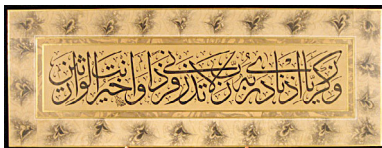 وزكريا إذ نادى ربه رب لا تذرني فردا وأنت خير الوارثين